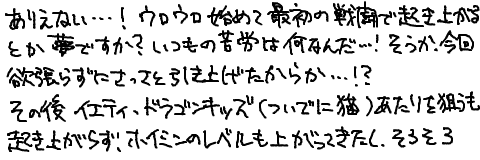 ありえない…！ウロウロ始めて最初の戦闘で起き上がる
とか夢ですか？いつもの苦労は何なんだ…！そうか、今回
欲張らずにさっさと引き上げたからか…!?
その後イエティ、ドラゴンキッズ（ついでに猫）あたりを狙うも
起き上がらず、ホイミンのレベルも上がってきたし、そろそろ